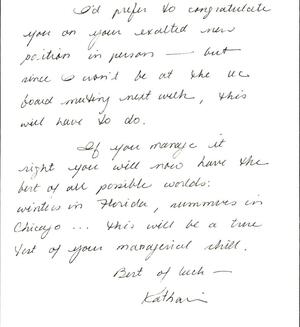 I'd prefer to congratulate
you on your exalted new
position in person — but
since I won't be at the UC
board meeting next week, this
will have to do.
If you manage it
right you will now have the
best of all possible worlds:
winters in Florida, summers in
Chicago ... this will be a true
test of your managerial skill.
Best of luck —